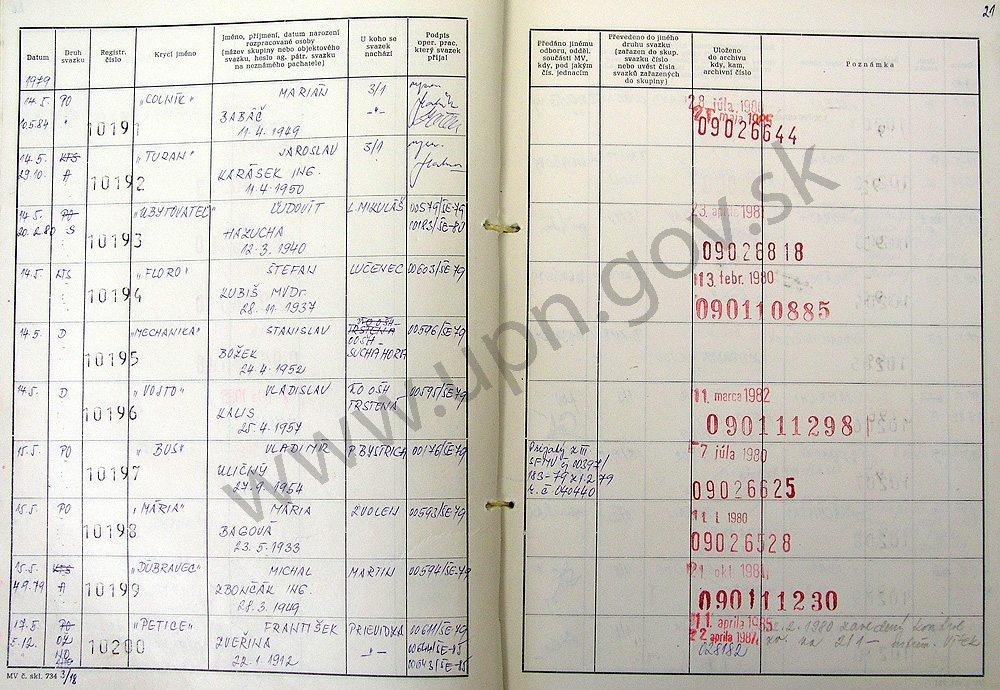 21
Datum
Druh svazku
Registr. číslo
Krycí jméno
Jméno, příjmení, datum narození
rozpracované osoby
(název skupiny nebo objektového
svazku, heslo ag. pátr. svazku
na neznámého pachatele)
U koho se
svazek
nachází
Podpis
oper. prac.
který svazek
přijal
Předáno jinému
odboru, odděl.
součásti MV,
kdy, pod jakým
čís. jednacím
Převedeno do jiného
druhu svazku
(zařazen do skup.
svazku číslo
nebo uvést čísla
svazků zařazených
do skupiny)
Uloženo
do archivu
kdy, kam,
archivní číslo
Poznámka
1979
14.5. PO „COLNÍK" MARIÁN 3/1
10.5.84 " 10191 BABÁČ -"-
11.4.1949
28. júla 1980
09026644
14.5. KTS „TURAN" JAROSLAV 3/1
29.10. A 10192 KARÁSEK ING.
11.4.1950
14.5. PO „UBYTOVATEĽ" ĽUDOVÍT L.MIKULÁŠ 00579/SE-79
S 10193 HAZUCHA 10183/SE-80
12.3.1940
09026818
14.5 KTS „FLORO" ŠTEFAN LUČENEC 00603/SE-79
10194 KUBIŠ MVDr.
28.11.1937
13. febr. 1980
090110885
14.5. D „MECHANIKA" STANISLAV TRSTENÁ 00596/SE-79
10195 BOŽEK OOŠH SUCHA HORA
24.4.1952
14.5. D „VOJTO" VLADISLAV KO OŠH 00595/SE-79
10196 KALIS TRSTENÁ
25.4.1957
11. marca 1982
090111298
15.5. PO „BUS" VLADIMÍR P.BYSTRICA 00176/SE-79
10197 ULIČNÝ
27.9.1954
7 júla 1980
09026625
15.5. PO „MÁRIA" MÁRIA ZVOLEN 00593/SE-79
10198 BAGOVÁ
23.5.1933
11. I. 1980
09026528
15.5. KTS „DÚBRAVEC" MICHAL MARTIN 00594/SE-79
4.9.79 A 10199 ZBONČÁK ING.
28.3.1949
090111230
17.5 PO „PETICE" FRANTIŠEK PRIEVIDZA 00611/SE-79
5.12. 10200 ZVEŘINA -"-
22.1.1912
00643/SE-85
11. apríla 1985
22 apríla 1987
028182
MV č. skl. 734 3/18
www.upn.gov.sk